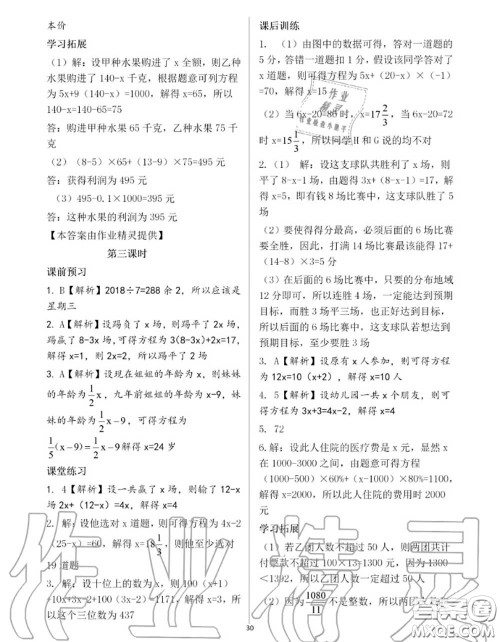 本价
学习拓展
（1）解：设甲种水果购进了 x 全额，则乙种
水果购进了 140-x 千克，根据题意可列方程
为 5x+9（140-x）=1000，解得 x=65，所以
140-x=140-65=75
答：购进甲种水果 65 千克，乙种水果 75 千
克
（2）（8-5）×65+（13-9）×75=495 元
答：获得利润为 495 元
（3）495-0.1×1000=395 元
答：这种水果的利润为 395 元
【本答案由作业精灵提供】
第三课时
课前预习
1. B【解析】2018÷7=288 余 2，所以应该是
星期三
2. A【解析】设踢负了 x 场，则踢平了 2x 场，
踢赢了 8-3x 场，可得方程为 3(8-3x)+2x=17，
解得 x=1，则 2x=2，所以踢平了 2 场
3. A【解析】设现在姐姐的年龄为 x，则妹妹
的年龄为 1/2 x，九年前姐姐的年龄为 x-9，妹
妹的年龄为 1/2 x-9，可得方程为
1/5 (x-9)=1/2 x-9 解得 x=24 岁
课堂练习
1. 4【解析】设一共赢了 x 局，则输了 12-x
场 2x+（12-x）=4，解得 x=4
2. 解：设他选对 x 道题，则可得方程为 4x-2
（25-x）=60，解得 x=18 1/3，所以他对了
19 道题
3. 解：设十位上的数为 x，则 100（x+1）
+10x+3x-2+100（3x-2）=1171，解得 x=3，所
以这个三位数为 437
课后训练
1. （1）由图中的数据可得，答对一道题的
5 分，答错一道题扣 1 分，假设该同学答对了
x 道题，则可得方程为 5x+（20-x）×（-1）
=70，解得 x=15
（2）当 6x-20=86 时，x=17 2/3，当 6x-20=72
时 x=15 1/3，所以同学 H 和 G 说的均不对
2. （1） 解：设这支球队共胜利了 x 场，则
平了 8-x-1 场，由题得 3x+（8-x-1）=17，解
得 x=5，即有钱 8 场比赛中，这支球队胜了 5
场
（2）要使得得分最高，必须后面的 6 场比赛
中全部胜利，打满 14 场比赛最高能得 17+
（14-8）×3=5 分
（3）在后面的 6 场比赛中，只要的分布地域
12 分即可，所以胜场不少于 4 场，一定能达
到预期目标，如胜 3 场，平 3 场，正好达到预期
目标，而胜 3 场，所以这支球队若想达到
预期目标，至少要胜 3 场
3. A【解析】设原有 x 人参加，则可得方程
为 12x=10（x+2），解得 x=10 人
4. 5【解析】设幼儿园一共 x 个朋友，则可
得方程为 3x+3=4x-2，解得 x=4
5. 72
6.解：设此人住院的医疗费是 x 元，显然 x
在 1000-3000 之间，由题意可得方程
（1000-500）×60%+（x-1000）×80%=1100，
解得 x=2000，所以此人住院的医疗费用 2000
元
学习拓展
（1）若乙团人数不超过 50 人，则两团共计
付票款不超过 100×13=1300 元，因为 1300
<1392，所以乙团人数超过 50 人
（2）因为 1080/11 不是整数，所以两团
30
作业精灵
MXQE.COM